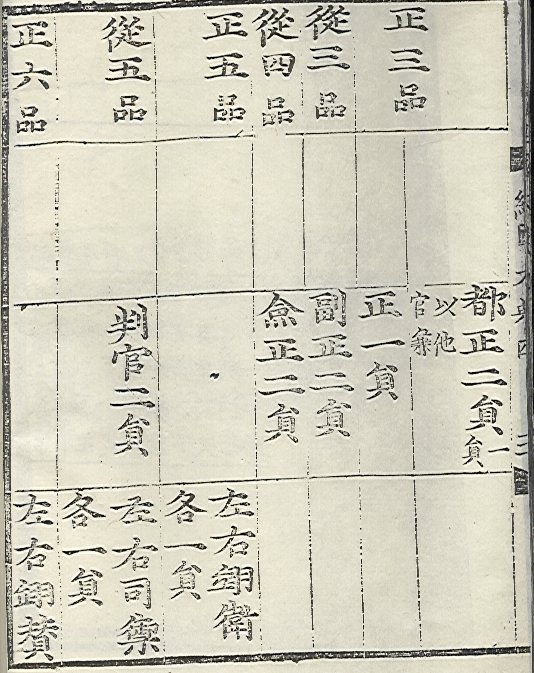 經國大典四
三
正三品
從三品
從四品
正五品
從五品
正六品
都正二貟一貟
以他
官兼
正一貟
副正二貟
僉正二貟
判官二貟
左右翊衛
各一貟
左右司禦
各一貟
左右翊賛